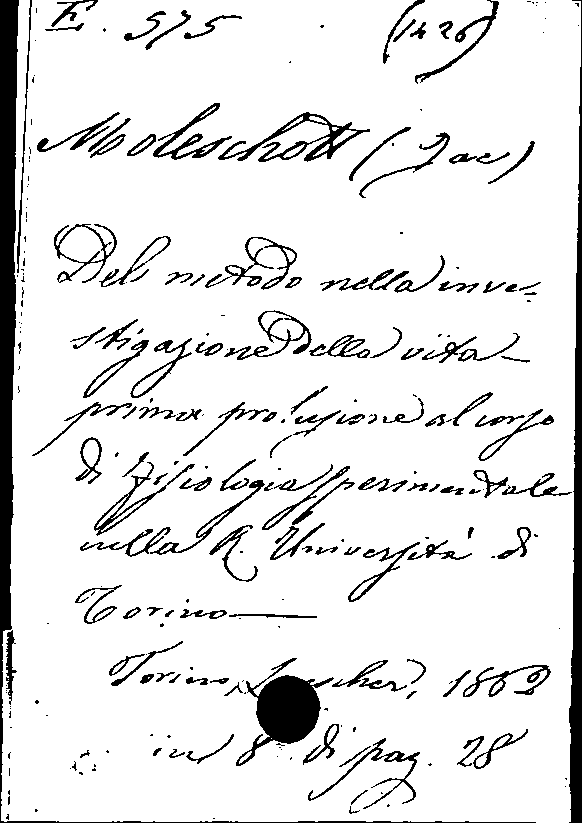 E. 575 (1426)
Moleschott (Jac)
Del metodo nella inve-
stigazione della vita
prima prolusione al corso
di Fisiologia sperimentale
nella R. Università di
Torino
Torino, 1862
in 8° di pag. 28